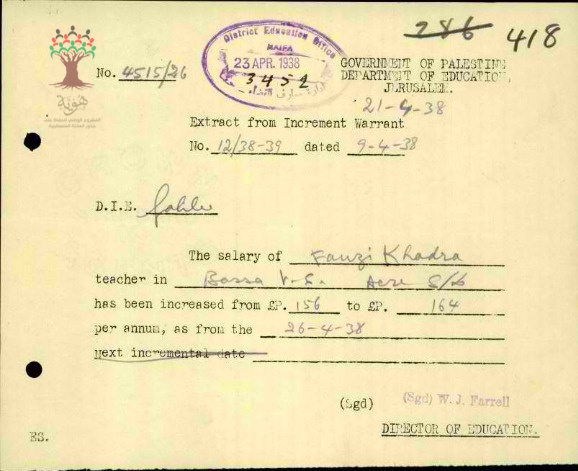 286 418
District Education Office
HAIFA
23 APR. 1938
3452
No. 4515/26
GOVERNMENT OF PALESTINE
DEPARTMENT OF EDUCATION,
JERUSALEM.
21-4-38
هوية
Extract from Increment Warrant
No. 12/38-39 dated 9-4-38
D.I.E.
The salary of Fauzi Khadra
teacher in Bassa V.S. Acre S/D
has been increased from £P. 156 to £P. 164
per annum, as from the 26-4-38
Next incremental date
(Sgd) (Sgd) W. J. Farrell
DIRECTOR OF EDUCATION.
ES.